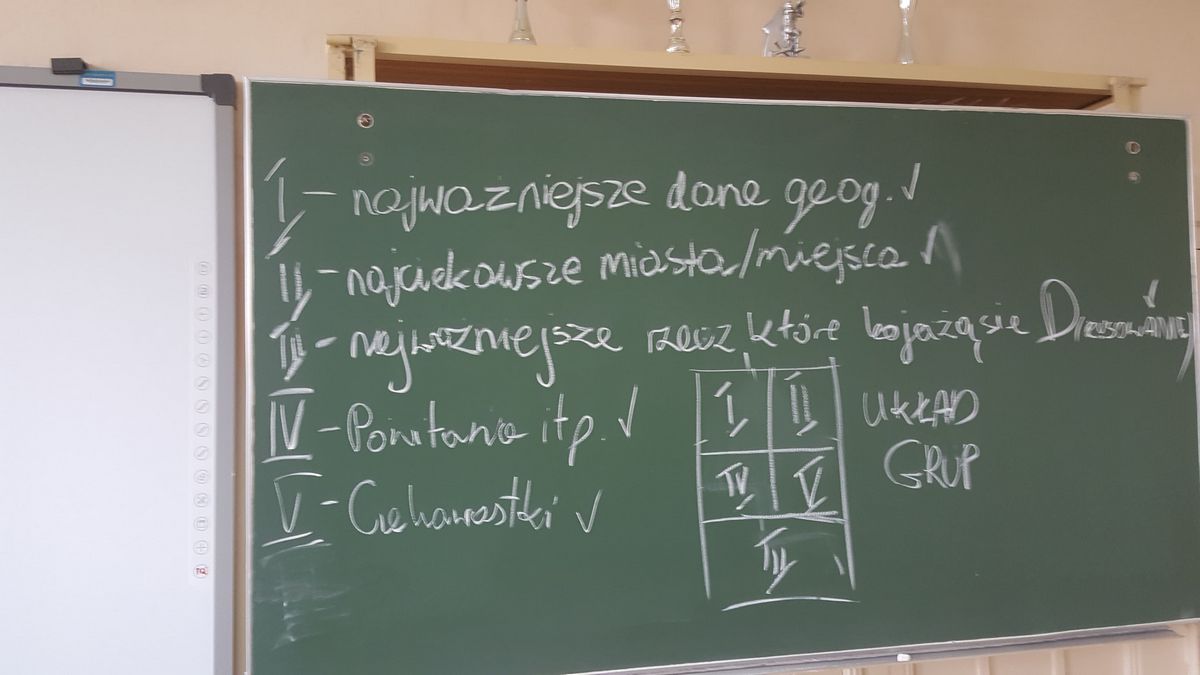 I - najważniejsze dane geog. ✓
II - najciekawsze miasta/miejsca ✓
III - najważniejsze rzecz które kojażą się
IV - Powitania itp. ✓
V - Ciekawostki ✓
I II
IV V
III
UKŁAD
GRUP